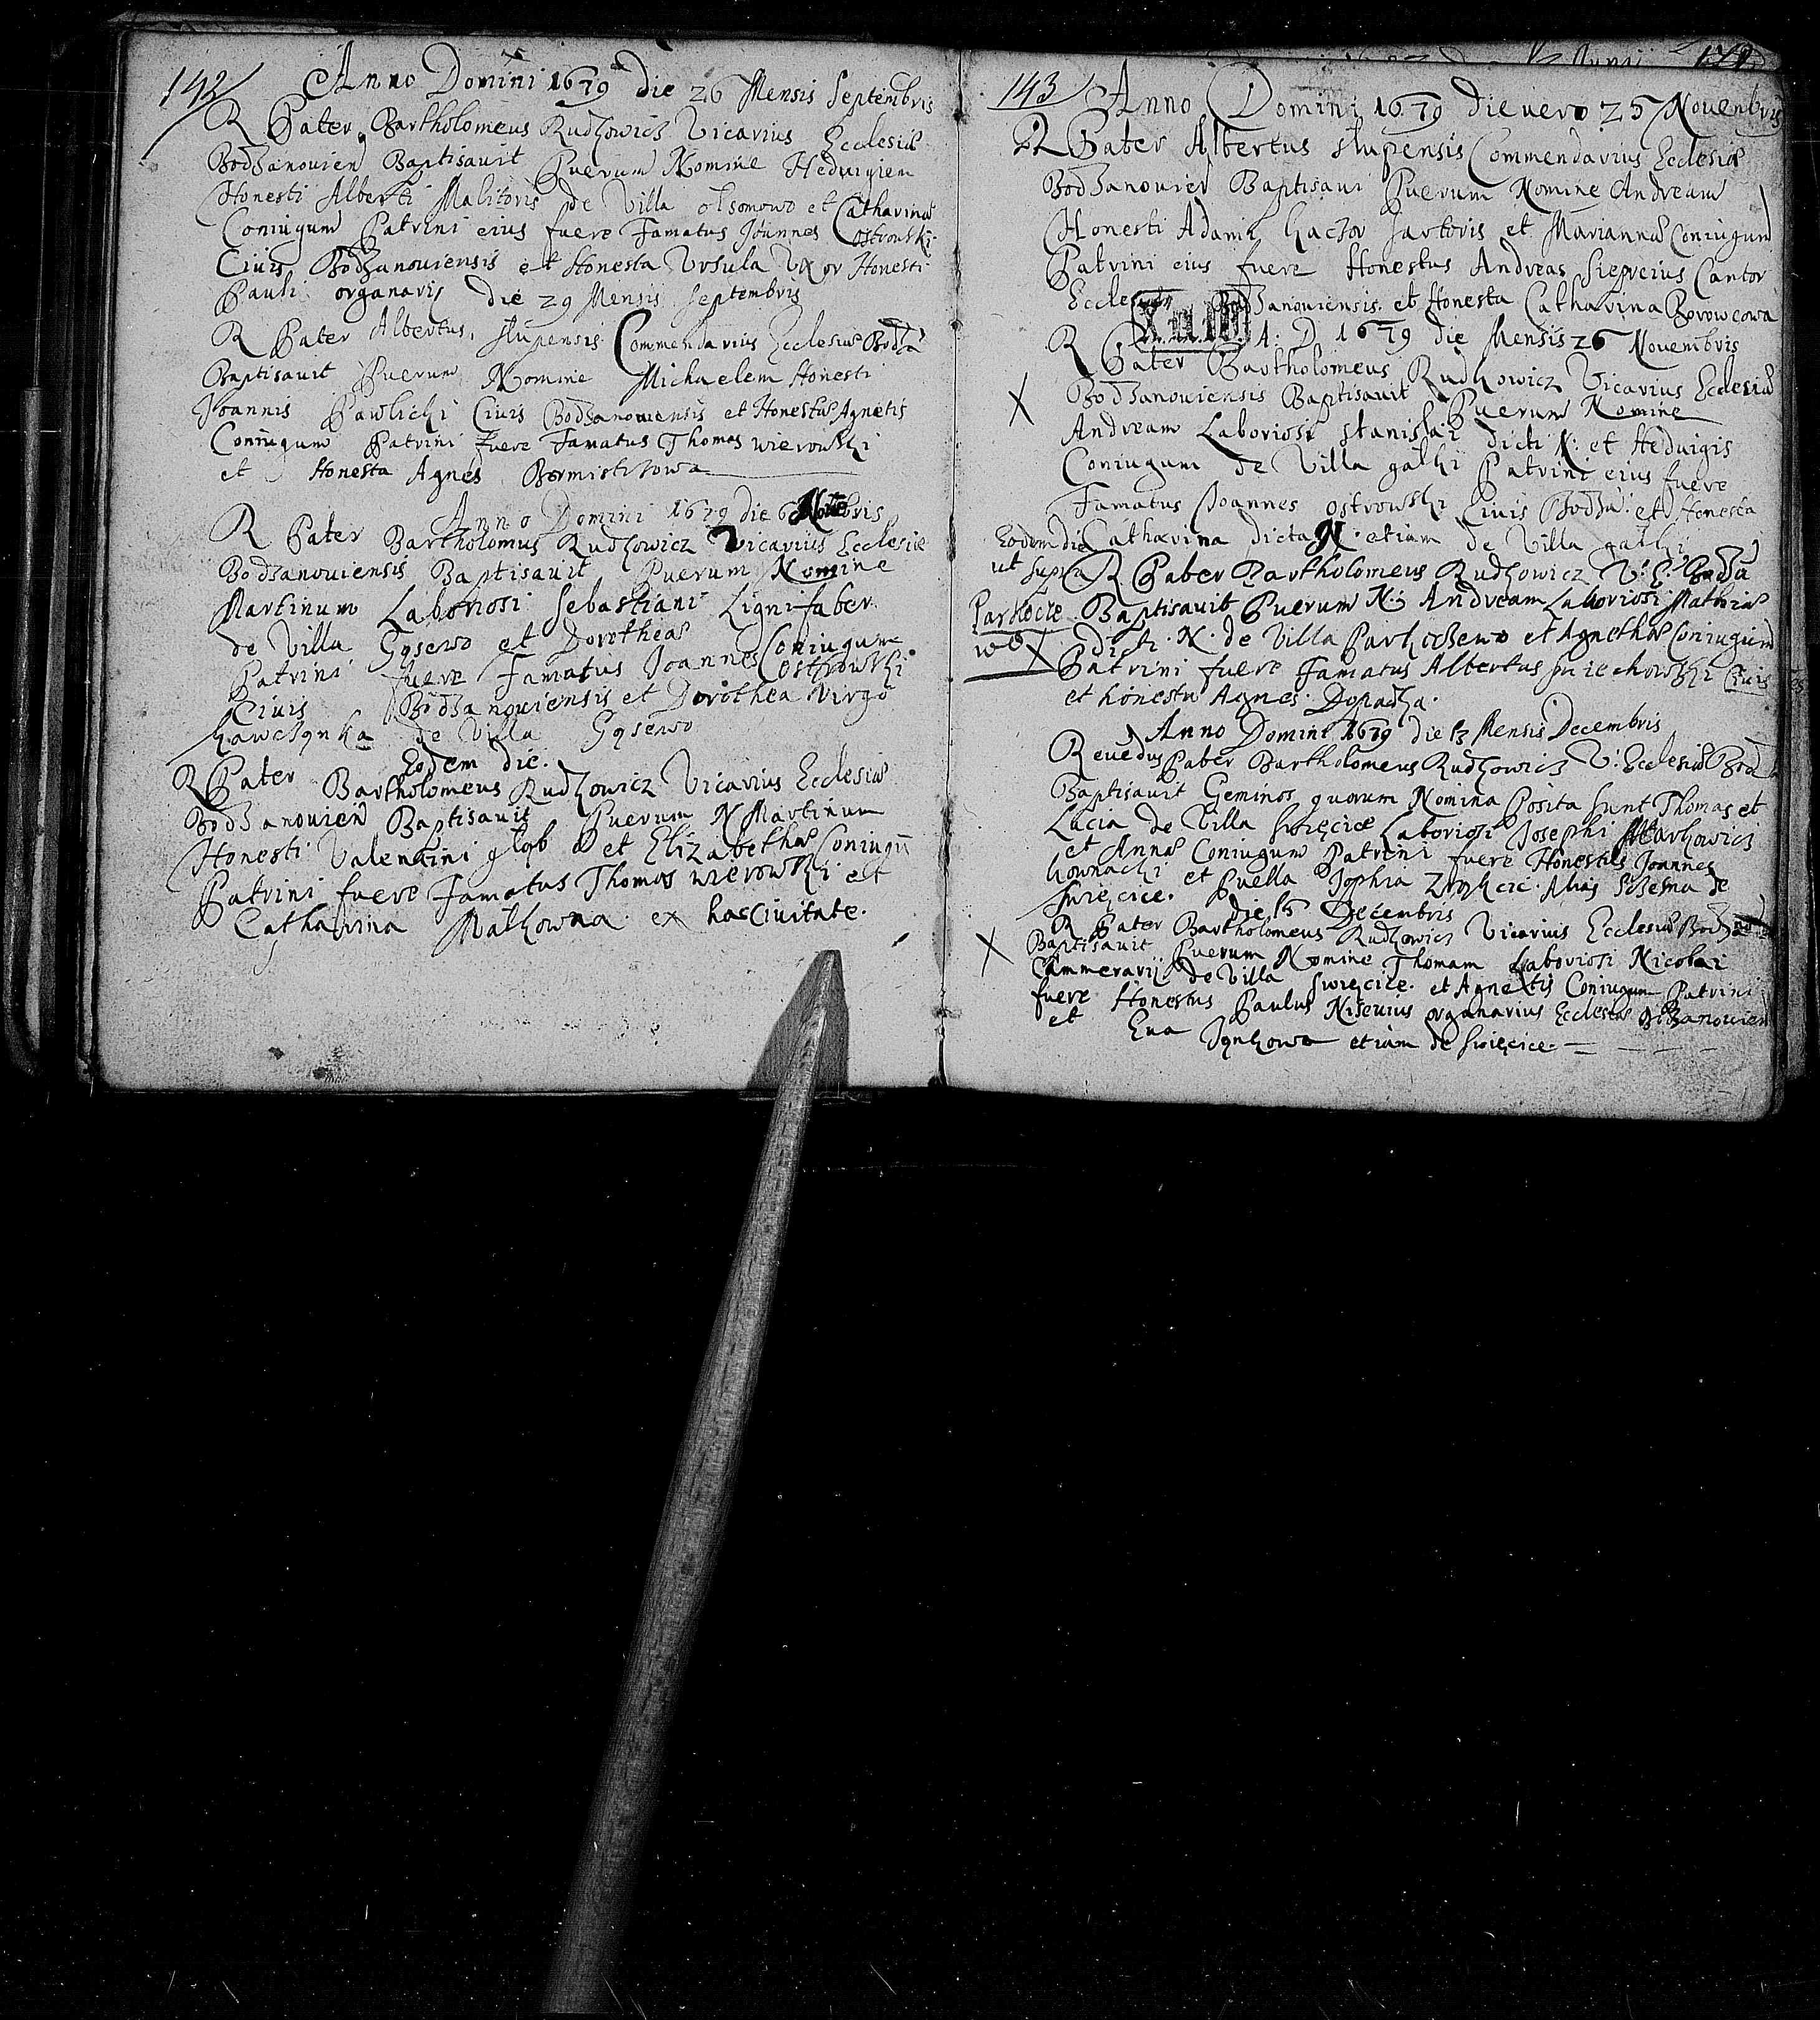 142
Anno Domini 1679 die 26 Mensis Septembris
R Pater Bartholomeus Rudkowicz Vicarius Ecclesiæ
Bodzanovien Baptisavit Puerum Nomine Hedvigiem
Honesti Alberti Malitoris de Villa olsomowo et Catharinæ
Coniugum Patrini eius fuere Famatus Joannes Ostrowski
Civis Bodzanoviensis et Honesta Vrsula Vxor Honesti
Pauli organarij die 29 Mensis Septembris
R Pater Albertus Slupensis Commendarius Ecclesiæ Bodza
Baptisavit Puerum Nomine Michaelem Honesti
Joannis Pawlicki Civis Bodzanoviensis et Honestæ Agnetis
Coniugum Patrini fuere Famatus Thomas wierowski
et Honesta Agnes Bormistrzowa
Anno Domini 1679 die 6 Novebris
R Pater Bartholomus Rudkowicz Vicarius Ecclesiæ
Bodzanoviensis Baptisavit Puerum Nomine
Martinum Laboriosi Sebastiani Lignifaber
de Villa Gąsewo et Dorotheæ Coniugum
Patrini fuere Famatus Joannes Ostrowski
Civis Bodzanoviensis et Dorothea Virgo
kawcząnka de Villa Gąsewo
Eodem die.
R Pater Bartholomeus Rudkowicz Vicarius Ecclesiæ
Bodzanovien Baptisavit Puerum N Martinum
Honesti Valentini głąb et Elizabethæ Coniugū
Patrini fuere Famatus Thomas wierowski et
Catharina Malkowna ex hac Civitate.
143
Anno Domini 1679 die vero 25 Novenbris
R Pater Albertus Slupensis Commendarius Ecclesiæ
Bodzanovien Baptisavi Puerum Nomine Andream
Honesti Adami kaczor Sartoris et Mariannæ Coniugum
Patrini eius fuere Honestus Andreas Siepreius Cantor
Ecclesiæ Bodzanoviensis et Honesta Catharina Borowcowa
A: D 1679 die Mensis 26 Novembris
R Pater Bartholomeus Rudkowicz Vicarius Ecclesiæ
X Bodzanoviensis Baptisavit Puerum Nomine
Andream Laboriosi Stanislai dicti N: et Hedvigis
Coniugum de Villa gałki Patrini eius fuere
Famatus Joannes Ostrowski Civis Bodza: et Honesta
Catharina dicta N. etiam de Villa gałki
Eodem die
ut supra R Pater Bartholomeus Rudkowicz V: E: Bodza
Parkocze Baptisavit Puerum N: Andream Laboriosi Mathiæ
wo X Dicti. N. de Villa Parkoczewo et Agnethæ Coniugum
Patrini fuere Famatus Albertus Civis
et honesta Agnes Dopadka.
Anno Domini 1679 die 13 Mensis Decembris
Revedus Pater Bartholomeus Rudkowicz V: Ecclesiæ Bodza
Baptisavit Geminos quorum Nomina Posita sunt Thomas et
Lucia de Villa Swięcice Laboriosi Josephi Markowicz
et Annæ Coniugum Patrini fuere Honestus Joannes
kownacki et Puella Sophia Alias de
Swięcice. die 15 Decembris
R Pater Bartholomeus Rudkowicz Vicarius Ecclesiæ Bodzano
X Baptisavit Puerum Nomine Thomam Laboriosi Nicolai
Cammerarij de Villa Swięcice. et Agnetis Coniugum Patrini
fuere Honestus Paulus Nisevius organarius Ecclesiæ Bodzanovien
et Eva Jąnkowa etiam de Swięcice.